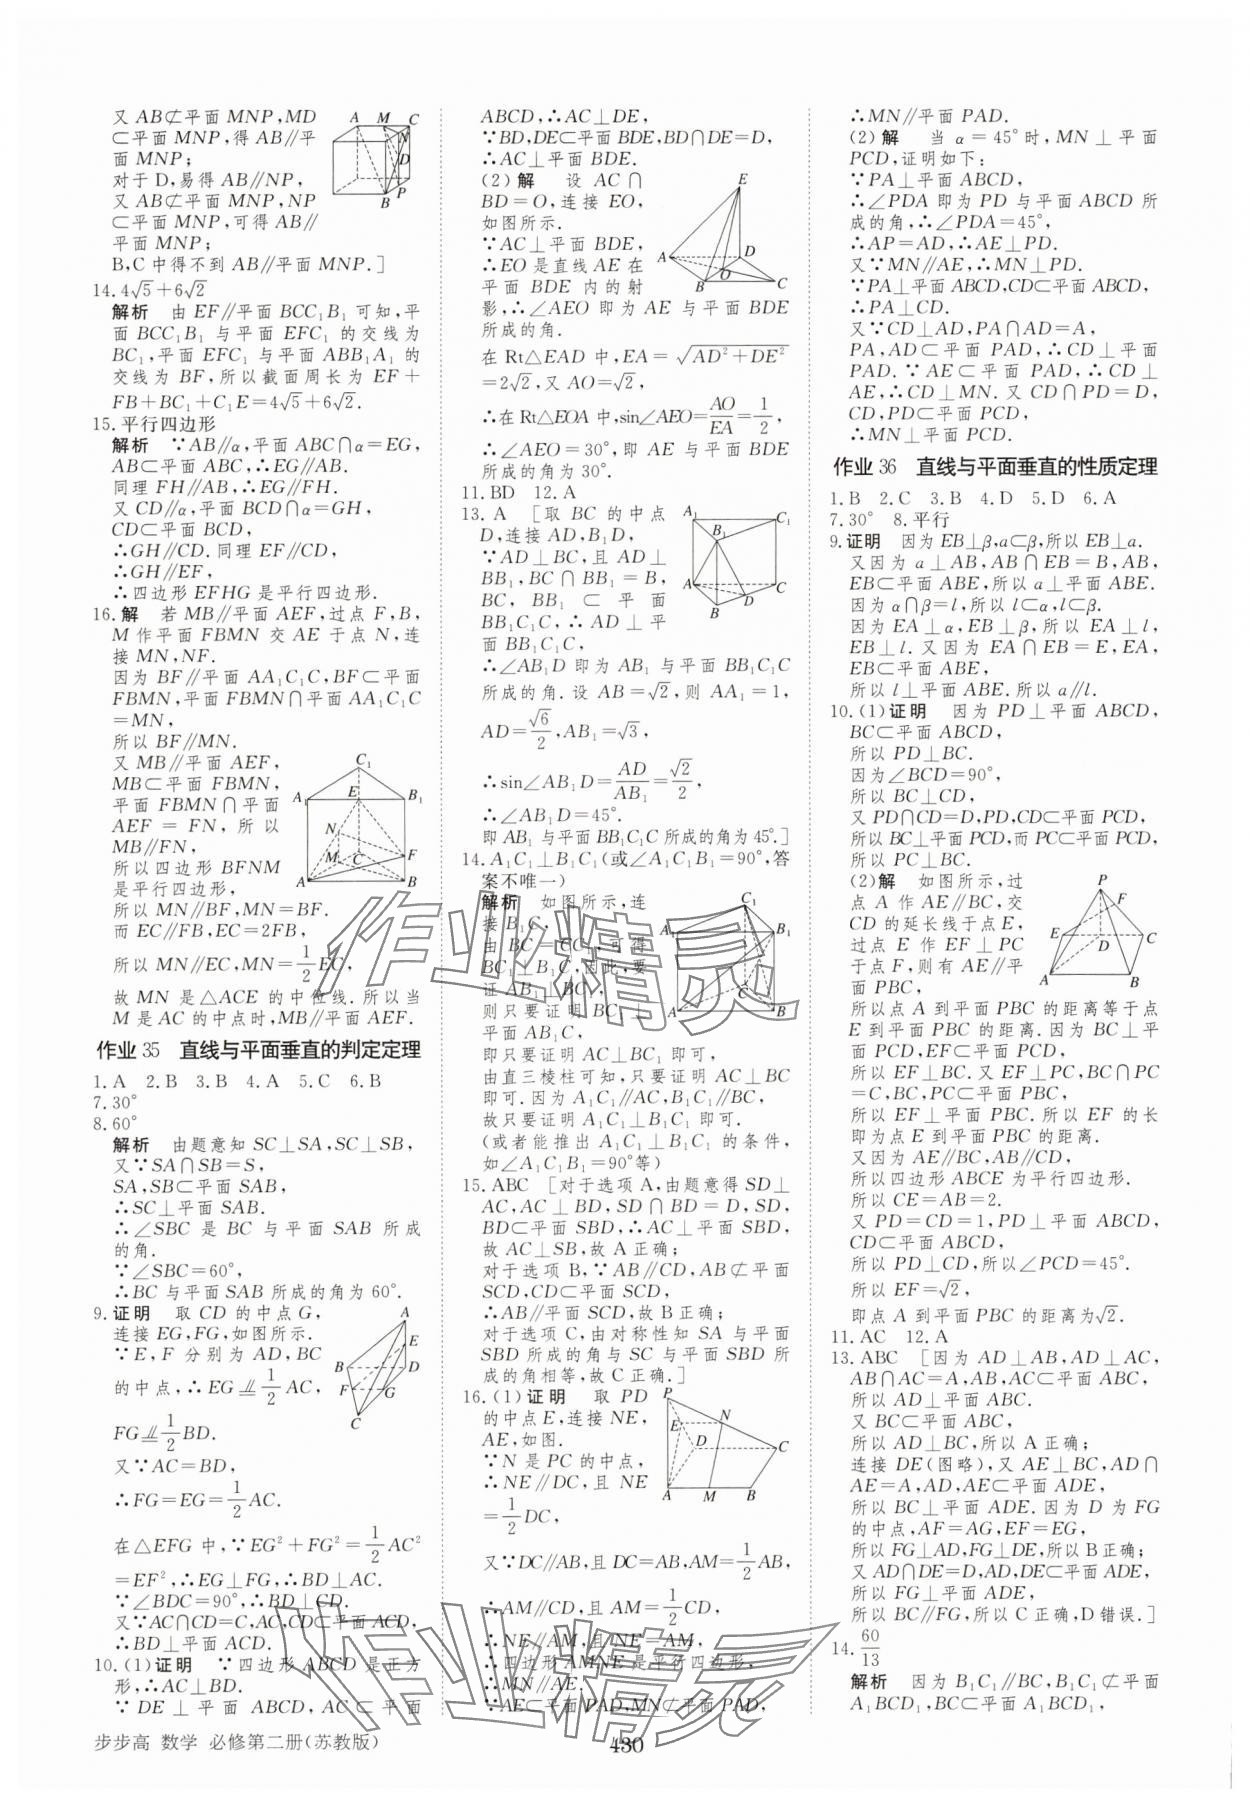 又 AB⊄平面 MNP,MD
⊂平面 MNP,得 AB∥平
面 MNP;
对于 D,易得 AB∥NP,
又 AB⊄平面 MNP,NP
⊂平面 MNP,可得 AB∥
平面 MNP;
B,C 中得不到 AB∥平面 MNP.]
14.4√5+6√2
解析 由 EF∥平面 BCC₁B₁ 可知,平
面 BCC₁B₁ 与平面 EFC₁ 的交线为
BC₁,平面 EFC₁ 与平面 ABB₁A₁ 的
交线为 BF,所以截面周长为 EF+
FB+BC₁+C₁E=4√5+6√2.
15.平行四边形
解析 ∵AB∥α,平面 ABC∩α=EG,
AB⊂平面 ABC,∴EG∥AB.
同理 FH∥AB,∴EG∥FH.
又 CD∥α,平面 BCD∩α=GH,
CD⊂平面 BCD,
∴GH∥CD.同理 EF∥CD,
∴GH∥EF,
∴四边形 EFHG 是平行四边形.
16.解 若 MB∥平面 AEF,过点 F,B,
M 作平面 FBMN 交 AE 于点 N,连
接 MN,NF.
因为 BF∥平面 AA₁C₁C,BF⊂平面
FBMN,平面 FBMN∩平面 AA₁C₁C
=MN,
所以 BF∥MN.
又 MB∥平面 AEF,
MB⊂平面 FBMN,
平面 FBMN∩平面
AEF = FN,所以
MB∥FN,
所以四边形 BFNM
是平行四边形,
所以 MN∥BF,MN=BF.
而 EC∥FB,EC=2FB,
所以 MN∥EC,MN=1/2EC,
故 MN 是△ACE 的中位线.所以当
M 是 AC 的中点时,MB∥平面 AEF.
作业 35 直线与平面垂直的判定定理
1.A 2.B 3.B 4.A 5.C 6.B
7.30°
8.60°
解析 由题意知 SC⊥SA,SC⊥SB,
又∵SA∩SB=S,
SA,SB⊂平面 SAB,
∴SC⊥平面 SAB.
∴∠SBC 是 BC 与平面 SAB 所成
的角.
∵∠SBC=60°,
∴BC 与平面 SAB 所成的角为 60°.
9.证明 取 CD 的中点 G,
连接 EG,FG,如图所示.
∵E,F 分别为 AD,BC
的中点,∴EG⫽1/2AC,
FG⫽1/2BD.
又∵AC=BD,
∴FG=EG=1/2AC.
在△EFG 中,∵EG²+FG²=1/2AC²
=EF²,∴EG⊥FG,∴BD⊥AC.
∵∠BDC=90°,∴BD⊥CD.
又∵AC∩CD=C,AC,CD⊂平面 ACD,
∴BD⊥平面 ACD.
10.(1)证明 ∵四边形 ABCD 是正方
形,∴AC⊥BD.
∵DE⊥平面 ABCD,AC⊂平面
ABCD,∴AC⊥DE,
∵BD,DE⊂平面 BDE,BD∩DE=D,
∴AC⊥平面 BDE.
(2)解 设 AC∩
BD=O,连接 EO,
如图所示.
∵AC⊥平面 BDE,
∴EO 是直线 AE 在
平面 BDE 内的射
影,∴∠AEO 即为 AE 与平面 BDE
所成的角.
在 Rt△EAD 中,EA=√(AD²+DE²)
=2√2,又 AO=√2,
∴在 Rt△EOA 中,sin∠AEO=AO/EA=1/2,
∴∠AEO=30°,即 AE 与平面 BDE
所成的角为 30°.
11.BD 12.A
13.A [取 BC 的中点
D,连接 AD,B₁D,
∵AD⊥BC,且 AD⊥
BB₁,BC∩BB₁=B,
BC,BB₁⊂平面
BB₁C₁C,∴AD⊥平
面 BB₁C₁C.
∴∠AB₁D 即为 AB₁ 与平面 BB₁C₁C
所成的角.设 AB=√2,则 AA₁=1,
AD=√6/2,AB₁=√3,
∴sin∠AB₁D=AD/AB₁=√2/2,
∴∠AB₁D=45°.
即 AB₁ 与平面 BB₁C₁C 所成的角为 45°.]
14.A₁C₁⊥B₁C₁(或∠A₁C₁B₁=90°,答
案不唯一)
解析 如图所示,连
接 B₁C.
由 BC=CC₁,可得
BC₁⊥B₁C,因此,要
证 AB₁⊥BC₁,
则只要证明 BC₁⊥
平面 AB₁C,
即只要证明 AC⊥BC₁ 即可,
由直三棱柱可知,只要证明 AC⊥BC
即可.因为 A₁C₁∥AC,B₁C₁∥BC,
故只要证明 A₁C₁⊥B₁C₁ 即可.
(或者能推出 A₁C₁⊥B₁C₁ 的条件,
如∠A₁C₁B₁=90°等)
15.ABC [对于选项 A,由题意得 SD⊥
AC,AC⊥BD,SD∩BD=D,SD,
BD⊂平面 SBD,∴AC⊥平面 SBD,
故 AC⊥SB,故 A 正确;
对于选项 B,∵AB∥CD,AB⊄平面
SCD,CD⊂平面 SCD,
∴AB∥平面 SCD,故 B 正确;
对于选项 C,由对称性知 SA 与平面
SBD 所成的角与 SC 与平面 SBD 所
成的角相等,故 C 正确.]
16.(1)证明 取 PD
的中点 E,连接 NE,
AE,如图.
∵N 是 PC 的中点,
∴NE∥DC,且 NE
=1/2DC,
又∵DC∥AB,且 DC=AB,AM=1/2AB,
∴AM∥CD,且 AM=1/2CD,
∴NE∥AM,且 NE=AM,
∴四边形 AMNE 是平行四边形,
∴MN∥AE.
∵AE⊂平面 PAD,MN⊄平面 PAD,
∴MN∥平面 PAD.
(2)解 当 α=45°时,MN⊥平面
PCD,证明如下:
∵PA⊥平面 ABCD,
∴∠PDA 即为 PD 与平面 ABCD 所
成的角,∴∠PDA=45°,
∴AP=AD,∴AE⊥PD.
又∵MN∥AE,∴MN⊥PD.
∵PA⊥平面 ABCD,CD⊂平面 ABCD,
∴PA⊥CD.
又∵CD⊥AD,PA∩AD=A,
PA,AD⊂平面 PAD,∴CD⊥平面
PAD.∵AE⊂平面 PAD,∴CD⊥
AE,∴CD⊥MN.又 CD∩PD=D,
CD,PD⊂平面 PCD,
∴MN⊥平面 PCD.
作业 36 直线与平面垂直的性质定理
1.B 2.C 3.B 4.D 5.D 6.A
7.30° 8.平行
9.证明 因为 EB⊥β,a⊂β,所以 EB⊥a.
又因为 a⊥AB,AB∩EB=B,AB,
EB⊂平面 ABE,所以 a⊥平面 ABE.
因为 α∩β=l,所以 l⊂α,l⊂β.
因为 EA⊥α,EB⊥β,所以 EA⊥l,
EB⊥l.又因为 EA∩EB=E,EA,
EB⊂平面 ABE,
所以 l⊥平面 ABE.所以 a∥l.
10.(1)证明 因为 PD⊥平面 ABCD,
BC⊂平面 ABCD,
所以 PD⊥BC.
因为∠BCD=90°,
所以 BC⊥CD,
又 PD∩CD=D,PD,CD⊂平面 PCD,
所以 BC⊥平面 PCD,而 PC⊂平面 PCD,
所以 PC⊥BC.
(2)解 如图所示,过
点 A 作 AE∥BC,交
CD 的延长线于点 E,
过点 E 作 EF⊥PC
于点 F,则有 AE∥平
面 PBC,
所以点 A 到平面 PBC 的距离等于点
E 到平面 PBC 的距离.因为 BC⊥平
面 PCD,EF⊂平面 PCD,
所以 EF⊥BC.又 EF⊥PC,BC∩PC
=C,BC,PC⊂平面 PBC,
所以 EF⊥平面 PBC.所以 EF 的长
即为点 E 到平面 PBC 的距离.
又因为 AE∥BC,AB∥CD,
所以四边形 ABCE 为平行四边形.
所以 CE=AB=2.
又 PD=CD=1,PD⊥平面 ABCD,
CD⊂平面 ABCD,
所以 PD⊥CD,所以∠PCD=45°.
所以 EF=√2,
即点 A 到平面 PBC 的距离为√2.
11.AC 12.A
13.ABC [因为 AD⊥AB,AD⊥AC,
AB∩AC=A,AB,AC⊂平面 ABC,
所以 AD⊥平面 ABC.
又 BC⊂平面 ABC,
所以 AD⊥BC,所以 A 正确;
连接 DE(图略),又 AE⊥BC,AD∩
AE=A,AD,AE⊂平面 ADE,
所以 BC⊥平面 ADE.因为 D 为 FG
的中点,AF=AG,EF=EG,
所以 FG⊥AD,FG⊥DE,所以 B 正确;
又 AD∩DE=D,AD,DE⊂平面 ADE,
所以 FG⊥平面 ADE,
所以 BC∥FG,所以 C 正确,D 错误.]
14.60/13
解析 因为 B₁C₁∥BC,B₁C₁⊂平面
A₁BCD₁,BC⊂平面 A₁BCD₁,
步步高 数学 必修第二册(苏教版)
430
作业精灵
作业精灵